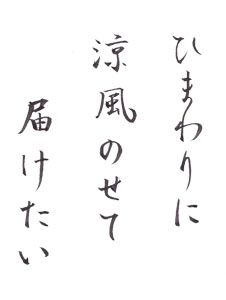 ひまわりに
涼風のせて
届けたい